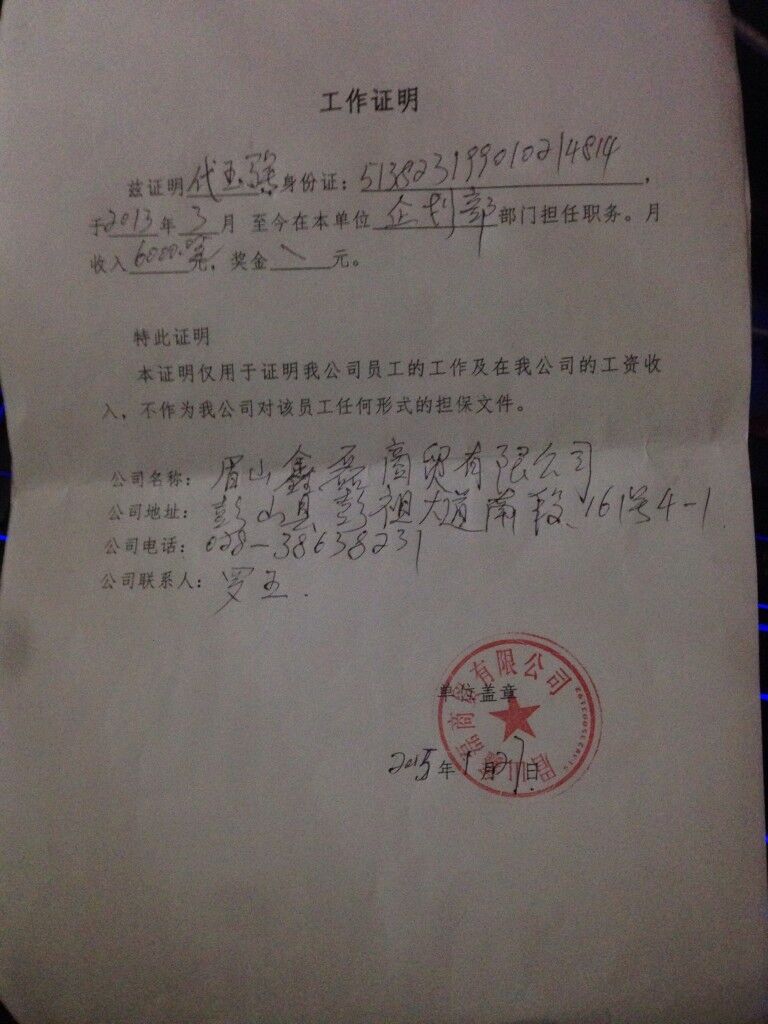 工作证明
兹证明代玉骙身份证：513823199010214814，
于2013年3月 至今在本单位企划部部门担任职务。月
收入6000.00元，奖金\元。
特此证明
本证明仅用于证明我公司员工的工作及在我公司的工资收
入，不作为我公司对该员工任何形式的担保文件。
公司名称：眉山鑫磊商贸有限公司
公司地址：彭山县彭祖大道南段161号4-1
公司电话：028-38638231
公司联系人：罗玉.
眉山鑫磊商贸有限公司
单位盖章
2015年1月27日